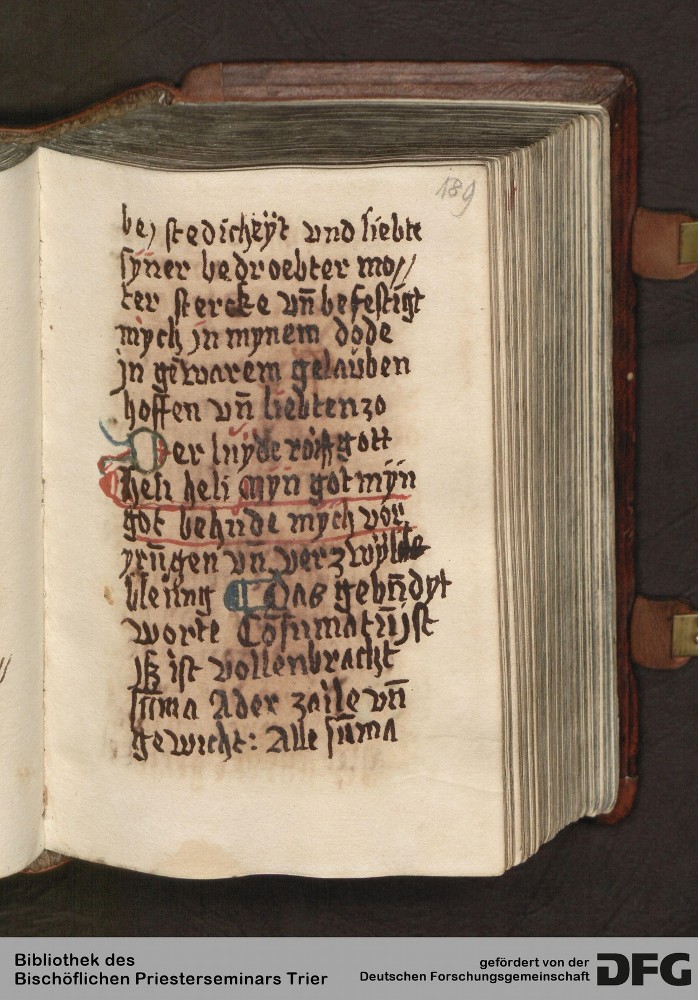 189
be) stedicheÿt vnd liebte
sÿner bedroebter mo//
ter stercke vn̄ befestigt
mych jn mynem dode
jn gewarem gelauben
hoffen vn̄ liebten zo
Der luyde roiff gott
heli heli myn got mÿn
got behude mych vor
yrūgen vn̄
bleiing Das gebn̄dyt
worte Cōsumatū jst
jß ist vollenbracht
sūma Ader zaile vn̄
gewicht: Alle sūma
Bibliothek des
Bischöflichen Priesterseminars Trier
gefördert von der
Deutschen Forschungsgemeinschaft
DFG